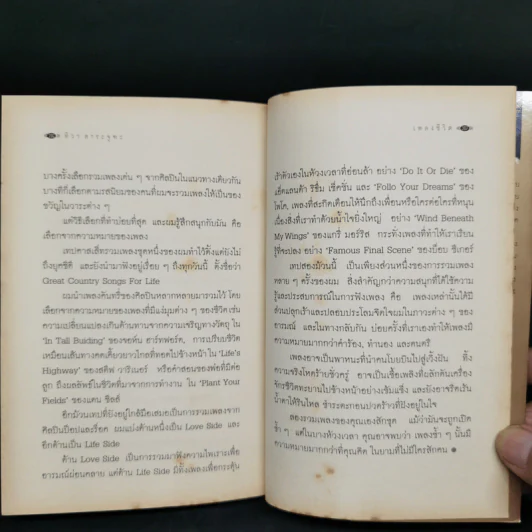 ทิวา สาระจูฑะ
บางครั้งเลือกรวมเพลงเด่น ๆ จากศิลปินในแนวทางเดียวกัน
บางทีก็เลือกตามรสนิยมของคนที่ผมจะรวมเพลงให้เป็นของ
ขวัญในวาระต่าง ๆ
แต่วิธีเลือกที่ทำบ่อยที่สุด และผมรู้สึกสนุกกับมัน คือ
เลือกจากความหมายของเพลง
เทปคาสเส็ทรวมเพลงชุดหนึ่งของผมทำไว้ตั้งแต่ยังไม่
ถึงยุคซีดี และยังนำมาฟังอยู่เรื่อย ๆ ถึงทุกวันนี้ ตั้งชื่อว่า
Great Country Songs For Life
ผมนำเพลงคันทรี่ของศิลปินหลากหลายมารวมไว้ โดย
เลือกจากความหมายของเพลงที่มีแง่มุมต่าง ๆ ของชีวิต เช่น
ความเปลี่ยนแปลงเกินต้านทานจากความเจริญทางวัตถุ ใน
'In Tall Buiding' ของจอห์น ฮาร์ทฟอร์ด, การเปรียบชีวิต
เหมือนเส้นทางคดเคี้ยวยาวไกลที่ทอดไปข้างหน้า ใน 'Life's
Highway' ของสตีฟ วาริเนอร์ หรือคำสอนของพ่อที่มีต่อ
ลูก ถึงผลลัพธ์ในชีวิตที่มาจากการทำงาน ใน 'Plant Your
Fields' ของแดน ซีลส์
อีกม้วนเทปที่ยังอยู่ใกล้มือเสมอเป็นการรวมเพลงจาก
ศิลปินป็อปและร็อค ผมแบ่งด้านหนึ่งเป็น Love Side และ
อีกด้านเป็น Life Side
ด้าน Love Side เป็นการรวมมาฟังความไพเราะเพื่อ
อารมณ์ผ่อนคลาย แต่ด้าน Life Side มีทั้งเพลงเพื่อกระตุ้น
เพลงชีวิต
เร้าตัวเองในห้วงเวลาที่อ่อนล้า อย่าง 'Do It Or Die' ของ
แอ็ตแลนต้า ริธึ่ม เซ็คชั่น และ 'Follo Your Dreams' ของ
โพโค, เพลงที่สะกิดเตือนให้นึกถึงเพื่อนหรือใครต่อใครที่หนุน
เนื่องสิ่งที่เราทำด้วยน้ำใจยิ่งใหญ่ อย่าง 'Wind Beneath
My Wings' ของแกรี่ มอร์ริส กระทั่งเพลงที่ทำให้เราเรียน
รู้ที่จะปลง อย่าง 'Famous Final Scene' ของบ็อบ ซีเกอร์
เทปสองม้วนนี้ เป็นเพียงส่วนหนึ่งของการรวมเพลง
หลาย ๆ ครั้งของผม สิ่งสำคัญกว่าความสนุกที่ได้ใช้ความ
รู้และประสบการณ์ในการฟังเพลง คือ เพลงเหล่านั้นได้มี
ส่วนปลุกเร้าและปลอบประโลมจิตใจผมในภาวะต่าง ๆ ของ
อารมณ์ และในทางกลับกัน บ่อยครั้งที่เราเองทำให้เพลงมี
ความหมายมากกว่าคำร้อง, ทำนอง และดนตรี
เพลงอาจเป็นพาหนะที่นำคนโบยบินไปสู่เวิ้งฝัน ทิ้ง
ความจริงโหดร้ายชั่วครู่ อาจเป็นเชื้อเพลิงที่ผลักดันเครื่อง
จักรชีวิตทะยานไปข้างหน้าอย่างเข้มแข็ง และยังอาจรีดเร้น
น้ำตาให้รินไหล ชำระตะกอนปวดร้าวที่ฝังอยู่ในใจ
ลองรวมเพลงของคุณเองสักชุด แม้ว่ามันจะถูกเปิด
ซ้ำ ๆ แต่ในบางห้วงเวลา คุณอาจพบว่า เพลงซ้ำ ๆ นั้นมี
ความหมายมากกว่าที่คุณคิด ในยามที่ไม่มีใครสักคน